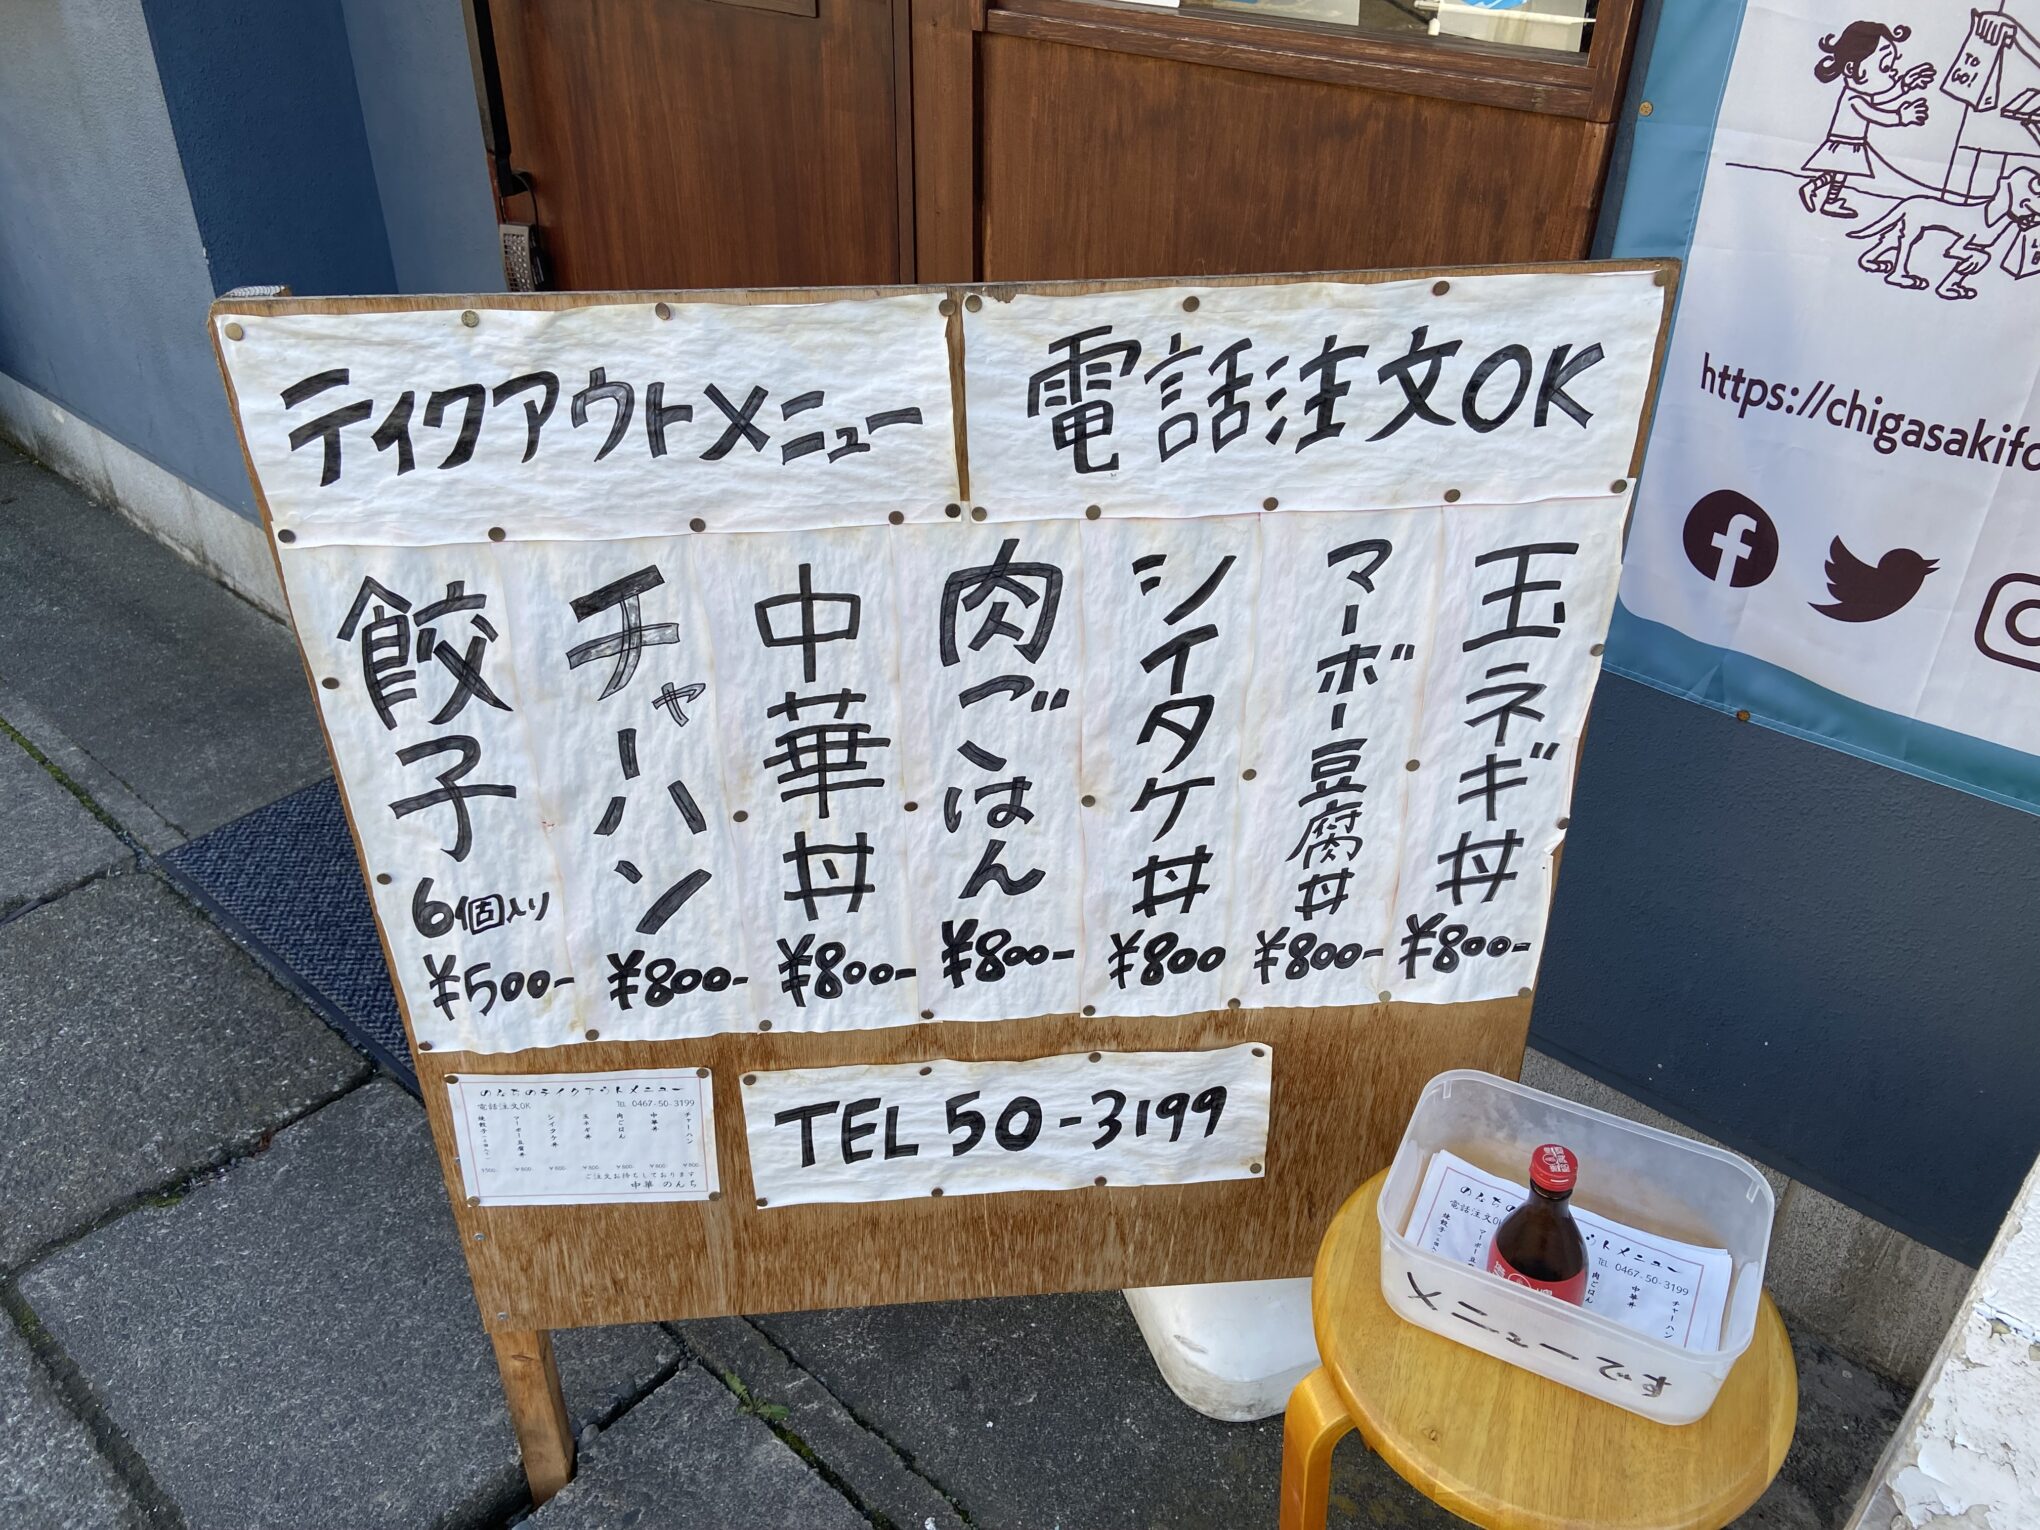 テイクアウトメニュー
電話注文OK
玉ネギ丼 ¥800-
マーボー豆腐丼 ¥800-
シイタケ丼 ¥800
肉ごはん ¥800-
中華丼 ¥800-
チャーハン ¥800-
餃子 6個入り ¥500-
TEL 50-3199
のんちのテイクアウトメニュー
電話注文OK
TEL 0467-50-3199
チャーハン ¥800-
中華丼 ¥800-
肉ごはん ¥800-
玉ネギ丼 ¥800-
シイタケ丼 ¥800-
マーボー豆腐丼 ¥800-
焼餃子 ¥500-
ご注文お待ちしております
中華 のんち
TO GO!
https://chigasakifo
電話注文OK
TEL 0467-50-3199
チャーハン
中華丼
肉ごはん
メニューです